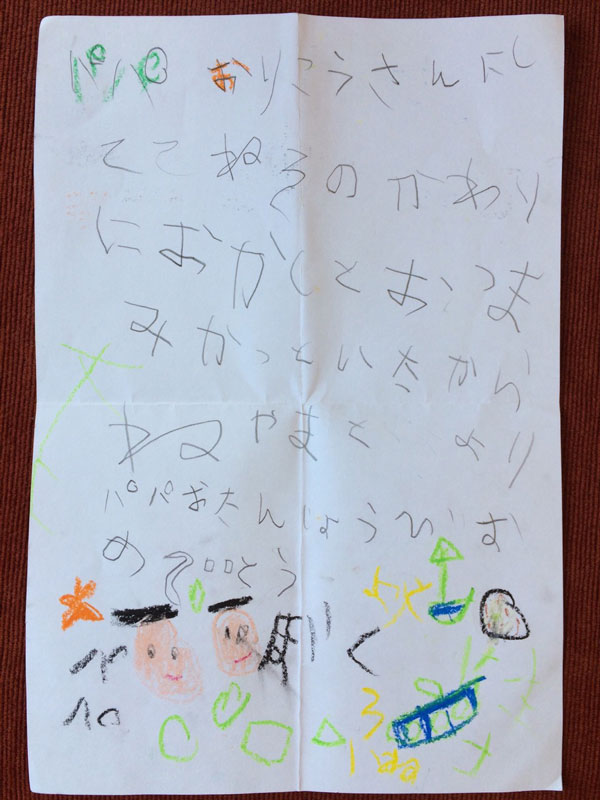 パパ おりこうさんにし
ててねそのかわり
におかしとおつま
みかっといたから
ねやまとより
パパおたんじょうびお
とう